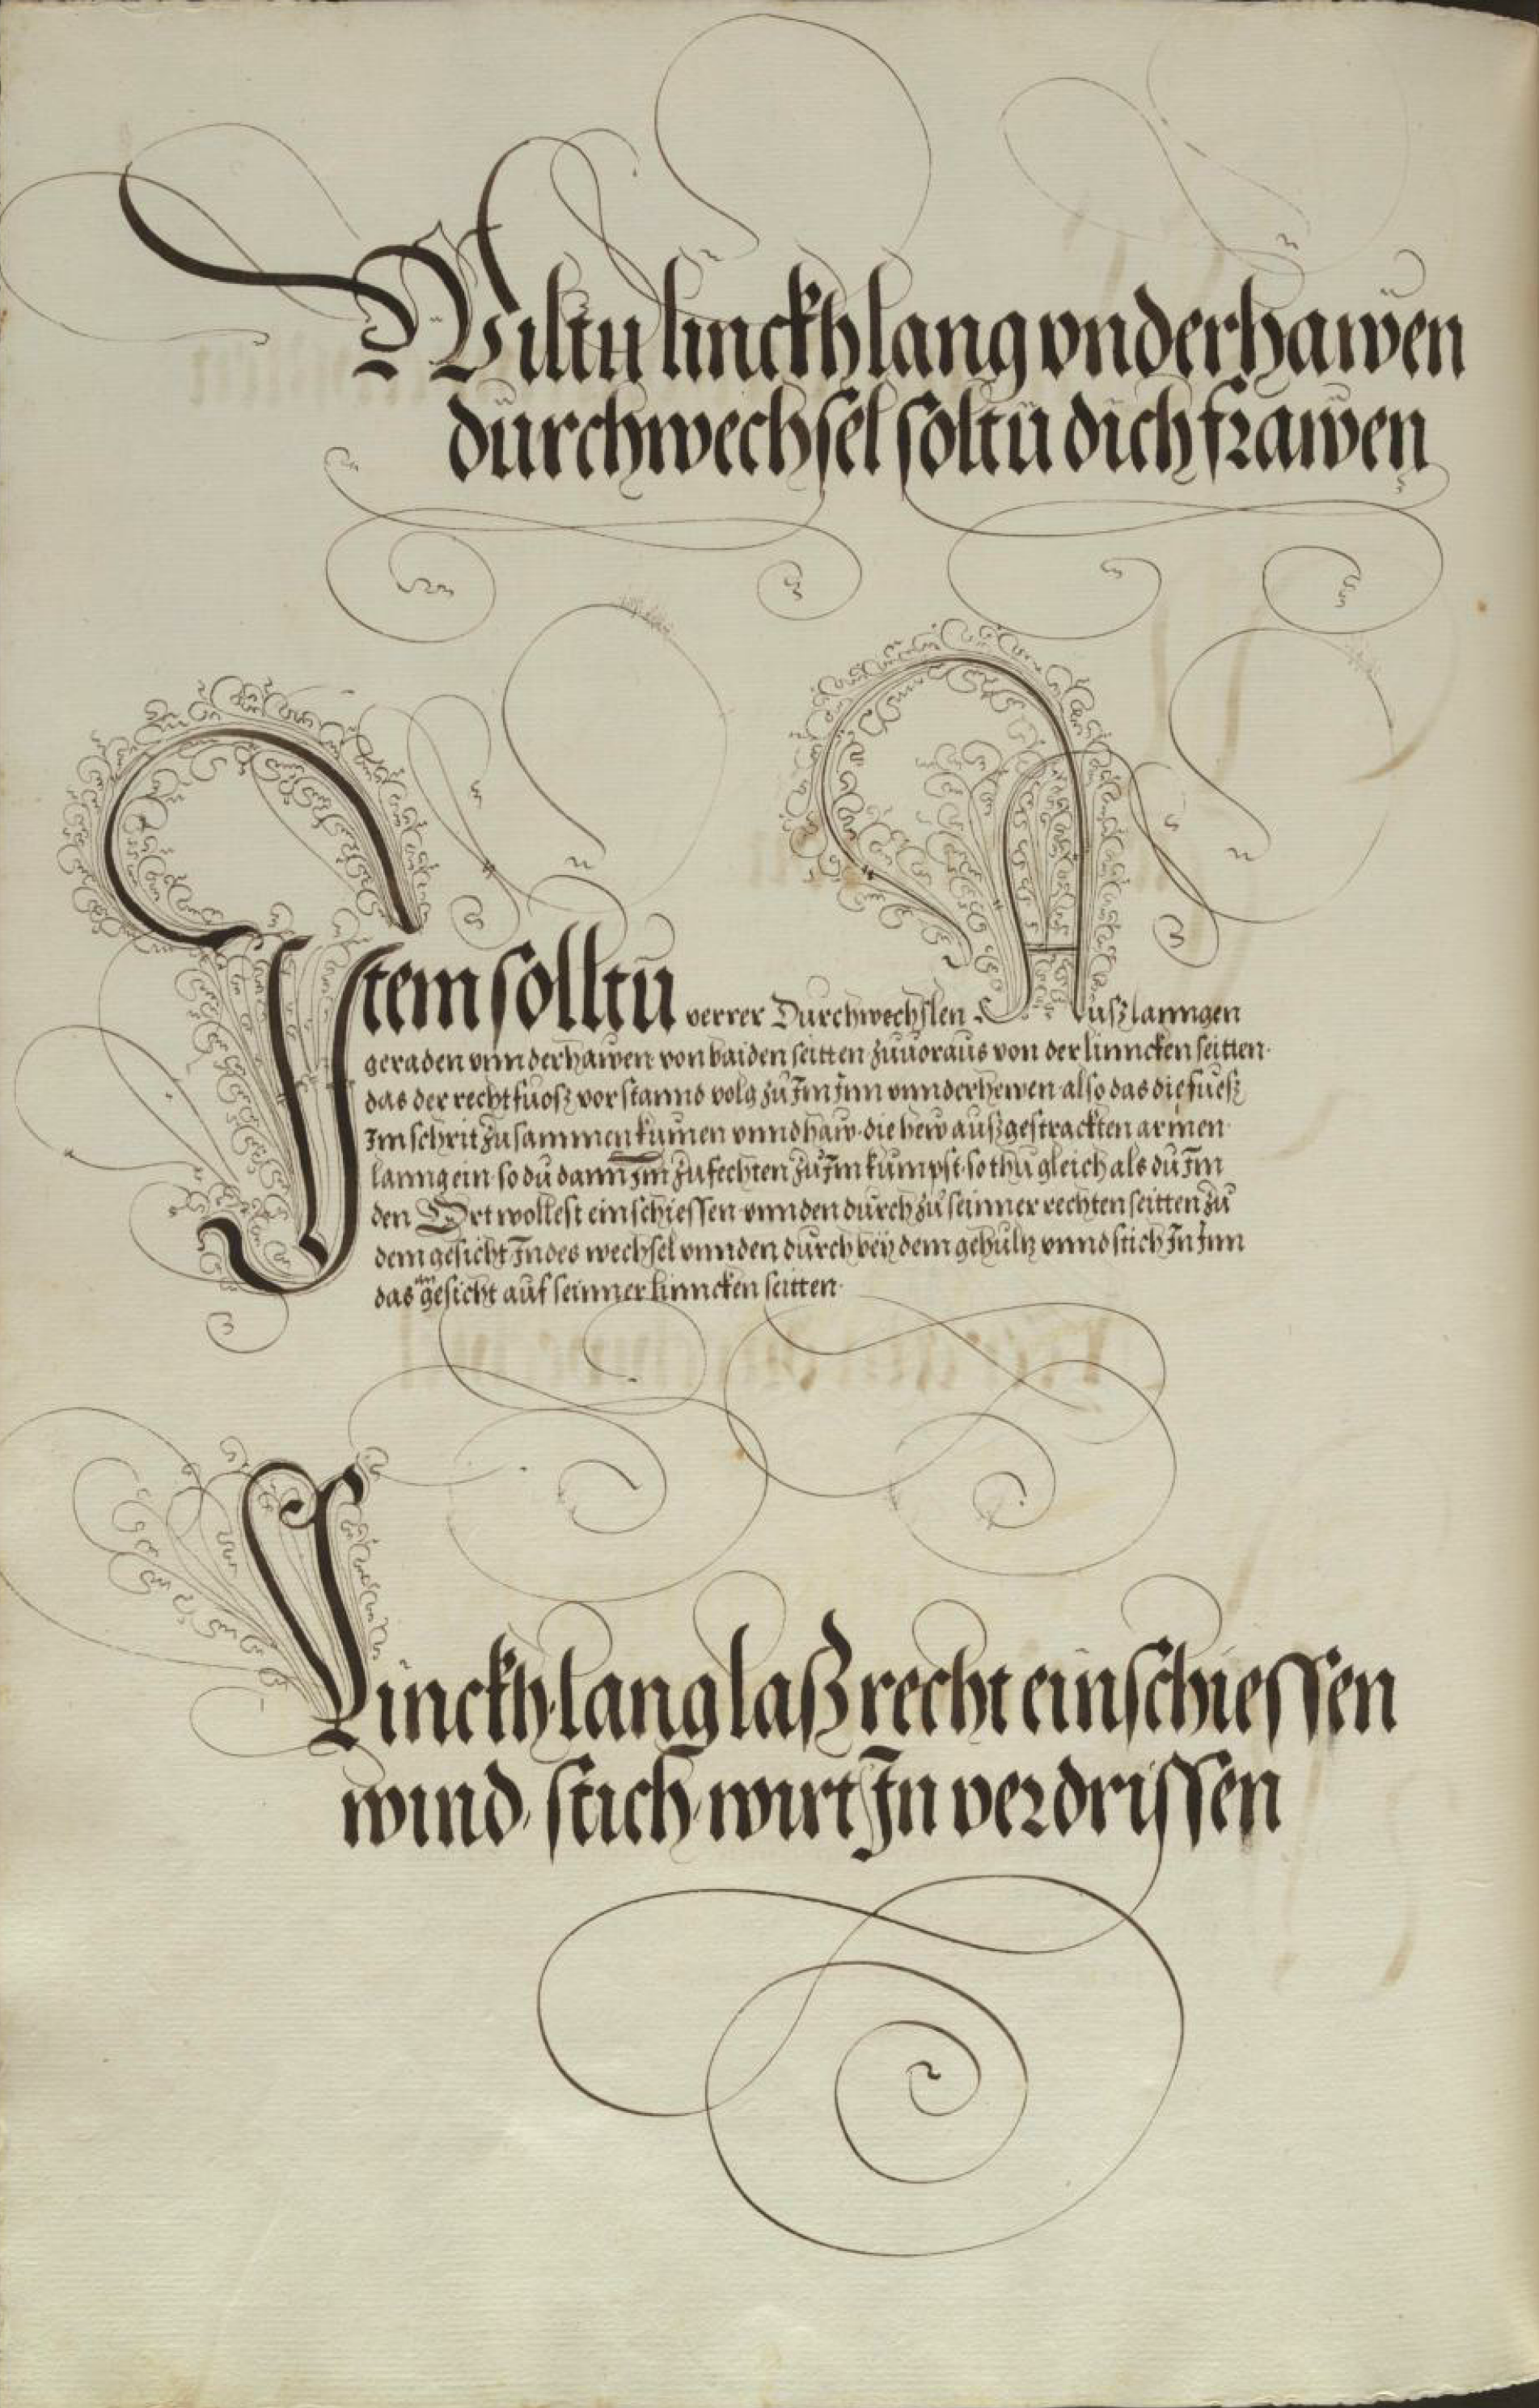 Wiltu linckh lang vnderhawen
durchwechsel soltu dich frawen
Item solltu verrer Durchwechslen Außlanngen
geraden vnnderhawen von baiden seitten zuuoraus von der linncken seitten
das der recht fuosz vor stannd volg zu Im Inn vnnderhewen also das die fuesz
Im schrit zusammen kumen vnnd haw die hew ausz gestrackten armen
lanng ein so du dann Im zufechten zu Im kumpst so thu gleich als du Im
den Ort wollest einschiessen vnnden durch zu seinner rechten seitten zu
dem gesicht Indes wechsel vnnden durch bey dem gehultz vnnd stich In Inn
das gesicht auf seinner linncken seitten
Linckh lang laß recht einschiessen
wind stich wirt In verdrissen